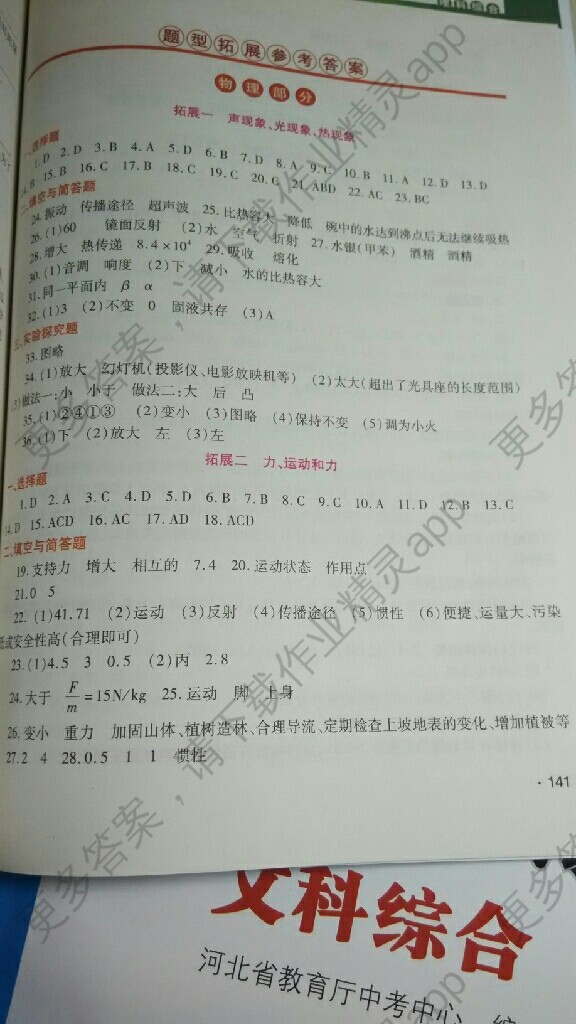 题型拓展参考答案
物理部分
拓展一 声现象、光现象、热现象
一、选择题
1.D 2.D 3.B 4.A 5.D 6.B 7.D 8.A 9.C 10.B 11.A 12.D 13.D
14.B 15.B 16.C 17.B 18.C 19.C 20.C 21.ABD 22.AC 23.BC
二、填空与简答题
24.振动 传播途径 超声波 25.比热容大 降低 碗中的水达到沸点后无法继续吸热
26.(1)60 镜面反射 (2)水 空气 折射 27.水银(甲苯) 酒精 酒精
28.增大 热传递 8.4×10⁴ 29.吸收 熔化
30.(1)音调 响度 (2)下 减小 水的比热容大
31.同一平面内 β α
32.(1)3 (2)不变 0 固液共存 (3)A
三、实验探究题
33.图略
34.(1)放大 幻灯机(投影仪、电影放映机等) (2)太大(超出了光具座的长度范围)
(3)做法一:小 小于 做法二:大 后 凸
35.(1)②④①③ (2)变小 (3)图略 (4)保持不变 (5)调为小火
36.(1)下 (2)放大 左 (3)左
拓展二 力、运动和力
一、选择题
1.D 2.A 3.C 4.D 5.D 6.B 7.B 8.C 9.C 10.A 11.D 12.B 13.C
14.D 15.ACD 16.AC 17.AD 18.ACD
二、填空与简答题
19.支持力 增大 相互的 7.4 20.运动状态 作用点
21.0 5
22.(1)41.71 (2)运动 (3)反射 (4)传播途径 (5)惯性 (6)便捷、运量大、污染
低或安全性高(合理即可)
23.(1)4.5 3 0.5 (2)内 2.8
24.大于 F/m=15N/kg 25.运动 脚 上身
26.变小 重力 加固山体、植树造林、合理导流、定期检查上坡地表的变化、增加植被等
27.2 4 28.0.5 1 1 惯性
·141
文科综合
河北省教育厅中考中心
更多答案,请下载作业精灵app
更多答案,请下载作业精灵app
更多答案